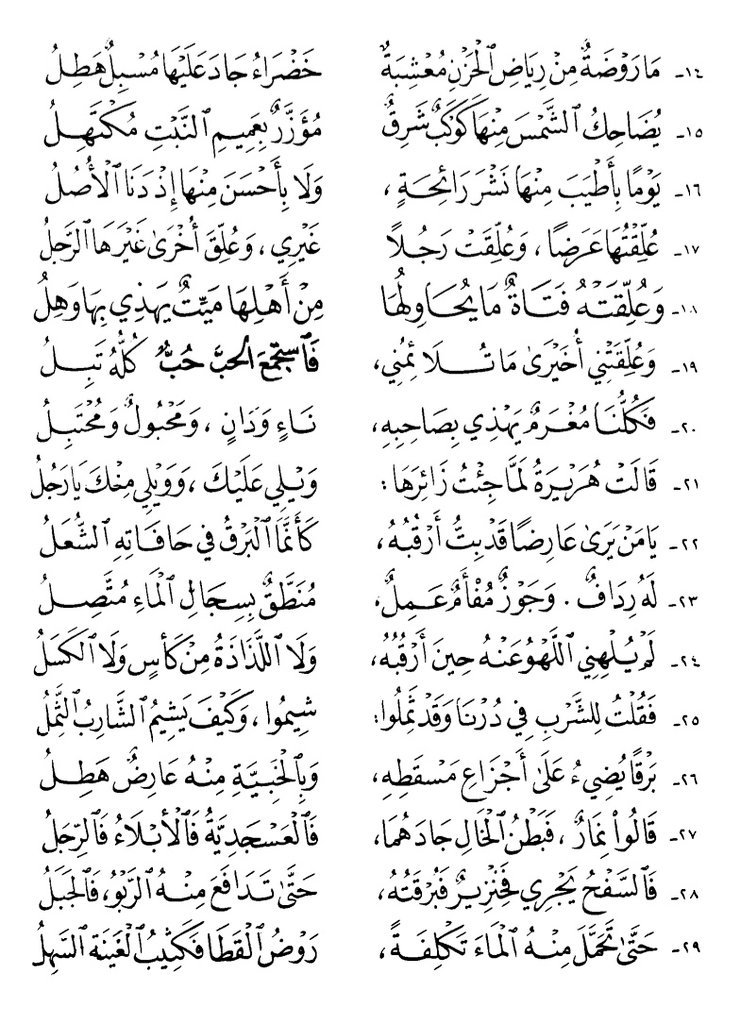 ١٤- مَا رَوْضَةٌ مِنْ رِيَاضِ الْحَزْنِ مُعْشِبَةٌ خَضْرَاءُ جَادَ عَلَيْهَا مُسْبِلٌ هَطِلُ
١٥- يُضَاحِكُ الشَّمْسَ مِنْهَا كَوْكَبٌ شَرِقٌ مُؤَزَّرٌ بِعَمِيمِ النَّبْتِ مُكْتَهِلُ
١٦- يَوْمًا بِأَطْيَبَ مِنْهَا نَشْرَ رَائِحَةٍ ، وَلَا بِأَحْسَنَ مِنْهَا إِذْ دَنَا الْأُصُلُ
١٧- عُلِّقْتُهَا عَرَضًا ، وَعُلِّقَتْ رَجُلًا غَيْرِي ، وَعُلِّقَ أُخْرَى غَيْرَهَا الرَّجُلُ
١٨- وَعُلِّقَتْهُ فَتَاةٌ مَا يُحَاوِلُهَا مِنْ أَهْلِهَا مَيِّتٌ يَهْذِي بِهَا وَهِلُ
١٩- وَعُلِّقَتْنِي أُخَيْرَى مَا تُلَائِمُنِي ، فَاسْتَجْمَعَ الحُبَّ حُبٌّ كُلُّهُ تَبِلُ
٢٠- فَكُلُّنَا مُغْرَمٌ يَهْذِي بِصَاحِبِهِ ، نَاءٍ وَدَانٍ ، وَمَحْبُولٌ وَمُحْتَبِلُ
٢١- قَالَتْ هُرَيْرَةُ لَمَّا جِئْتُ زَائِرَهَا : وَيْلِي عَلَيْكَ ، وَوَيْلِي مِنْكَ يَا رَجُلُ
٢٢- يَا مَنْ يَرَى عَارِضًا قَدْ بِتُّ أَرْقُبُهُ ، كَأَنَّمَا الْبَرْقُ فِي حَافَاتِهِ الشُّعَلُ
٢٣- لَهُ رِدَافٌ . وَجَوْزٌ مُفْأَمٌ عَمِلٌ ، مُنَطَّقٌ بِسِجَالِ الْمَاءِ مُتَّصِلُ
٢٤- لَمْ يُلْهِنِي اللَّهْوُ عَنْهُ حِينَ أَرْقُبُهُ ، وَلَا اللَّذَاذَةُ مِنْ كَأْسٍ وَلَا الْكَسَلُ
٢٥- فَقُلْتُ لِلشَّرْبِ فِي دُرْنَا وَقَدْ ثَمِلُوا : شِيمُوا ، وَكَيْفَ يَشِيمُ الشَّارِبُ الثَّمِلُ
٢٦- بَرْقًا يُضِيءُ عَلَى أَجْزَاعِ مَسْقَطِهِ ، وَبِالْخَبِيَّةِ مِنْهُ عَارِضٌ هَطِلُ
٢٧- قَالُوا نِمَارٌ ، فَبَطْنُ الْخَالِ جَادَهُمَا ، فَالْعَسْجَدِيَّةُ فَالْأَبْلَاءُ فَالرِّجَلُ
٢٨- فَالسَّفْحُ يَجْرِي فَخِنْزِيرٌ فَبُرْقَتُهُ ، حَتَّى تَدَافَعَ مِنْهُ الرَّبْوُ ، فَالْجَبَلُ
٢٩- حَتَّى تَحَمَّلَ مِنْهُ الْمَاءَ تَكْلِفَةً ، رَوْضُ الْقَطَا فَكَثِيبُ الْغَيْنَةِ السَّهِلُ